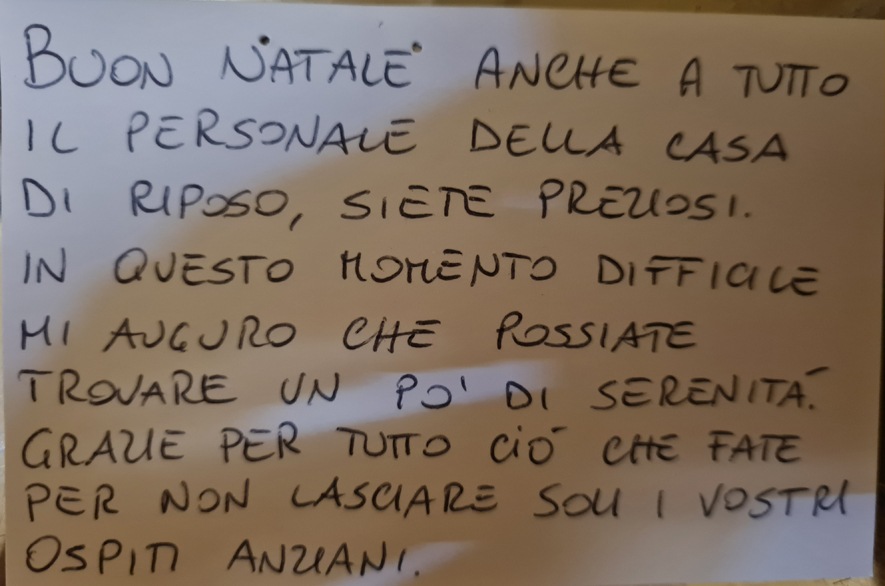 BUON NATALE ANCHE A TUTTO
IL PERSONALE DELLA CASA
DI RIPOSO, SIETE PREZIOSI.
IN QUESTO MOMENTO DIFFICILE
MI AUGURO CHE POSSIATE
TROVARE UN PO' DI SERENITÀ.
GRAZIE PER TUTTO CIÒ CHE FATE
PER NON LASCIARE SOLI I VOSTRI
OSPITI ANZIANI.